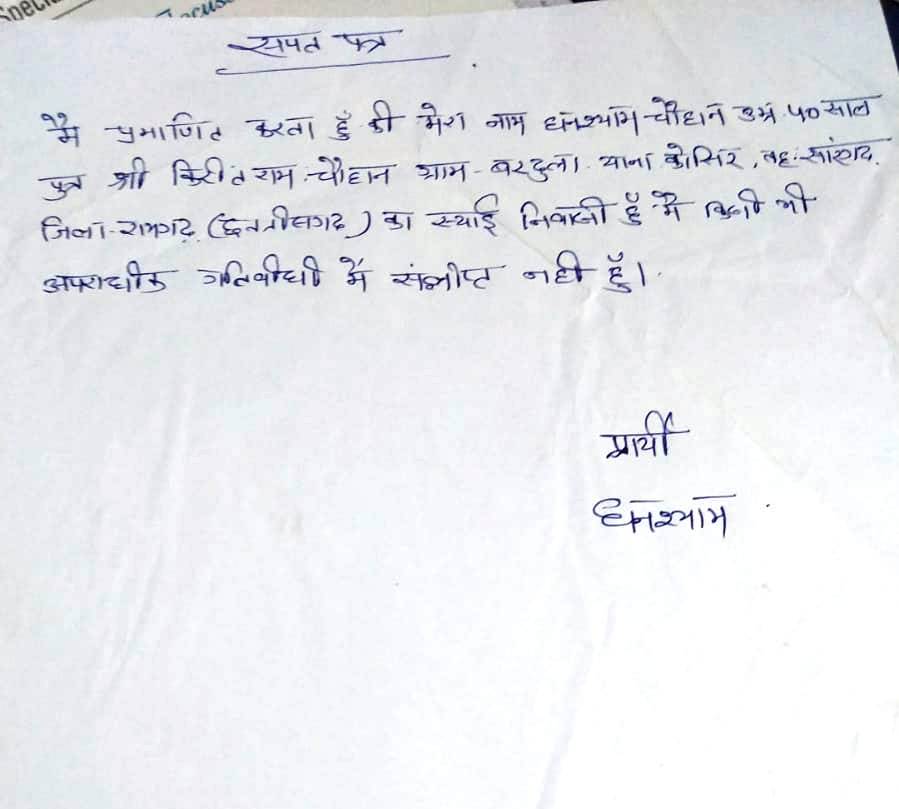 Speci
Focus
सपत पत्र
मै प्रमाणित करता हुँ की मेरा नाम घनश्याम चौहान उम्र ५० साल
पुत्र श्री किरीत राम चौहान ग्राम - बरदुला. थाना कोसिर, तह:-सारंगढ.
जिला-रायगढ़ (छत्तीसगढ) का स्थाई निवासी हुँ मै किसी भी
अपराधीक गतिवीधी में संलीप्ट नही हुँ।
प्रार्थी
घनश्याम